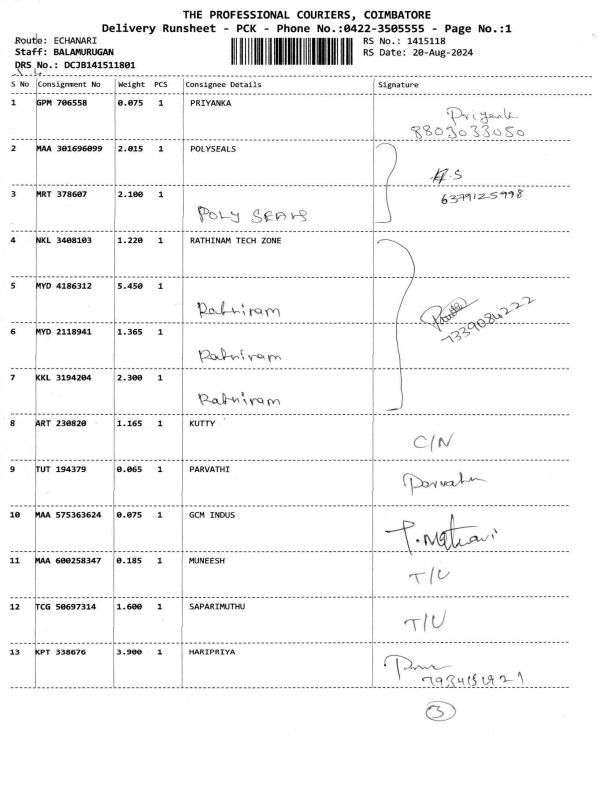 THE PROFESSIONAL COURIERS, COIMBATORE
Delivery Runsheet - PCK - Phone No.:0422-3505555 - Page No.:1
Route: ECHANARI RS No.: 1415118
Staff: BALAMURUGAN RS Date: 20-Aug-2024
DRS No.: DCJB141511801
S No Consignment No Weight PCS Consignee Details Signature
1 GPM 706558 0.075 1 PRIYANKA
Priyank
8803033050
2 MAA 301696099 2.015 1 POLYSEALS
3 MRT 378607 2.100 1
6379125998
POLY SEALS
4 NKL 3408103 1.220 1 RATHINAM TECH ZONE
5 MYD 4186312 5.450 1
Ratniram
7339084222
6 MYD 2118941 1.365 1
Ratniram
7 KKL 3194204 2.300 1
Ratniram
8 ART 230820 1.165 1 KUTTY
C/N
9 TUT 194379 0.065 1 PARVATHI
10 MAA 575363624 0.075 1 GCM INDUS
11 MAA 600258347 0.185 1 MUNEESH
T/U
12 TCG 50697314 1.600 1 SAPARIMUTHU
T/U
13 KPT 338676 3.900 1 HARIPRIYA
3